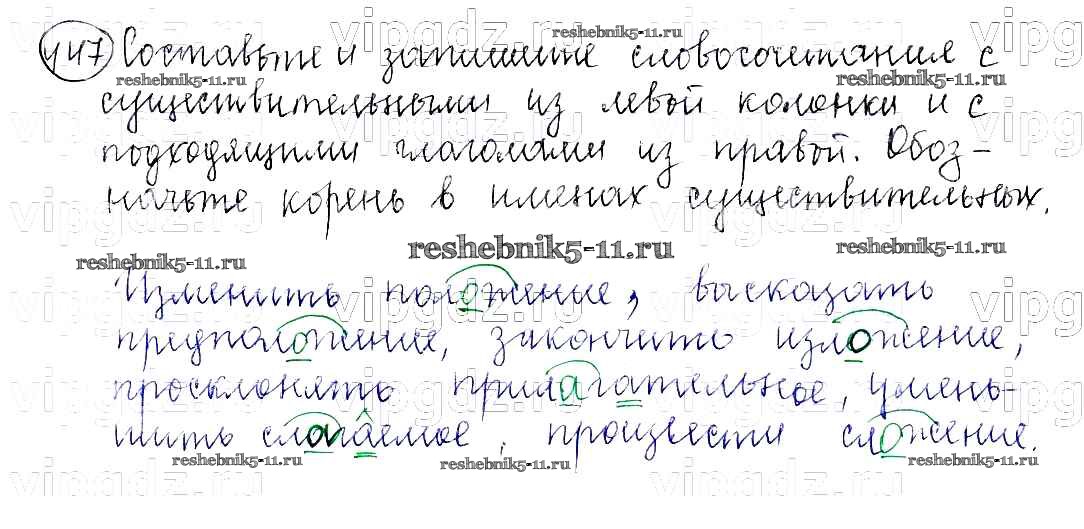 447 Составьте и запишите словосочетания с
существительными из левой колонки и с
подходящими глаголами из правой. Обоз-
начьте корень в именах существительных.
Изменить положение, высказать
предположение, закончить изложение,
просклонять прилагательное, умень-
шить слагаемое, произвести сложение.
vipgdz.ru
reshebnik5-11.ru